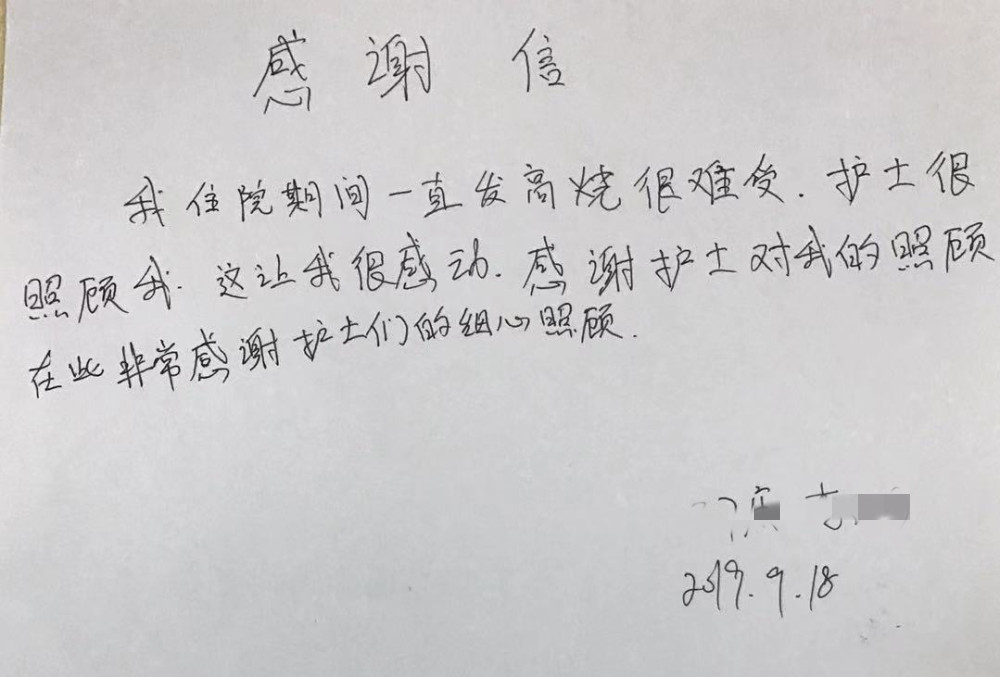 感谢信
我住院期间一直发高烧很难受.护士很
照顾我.这让我很感动.感谢护士对我的照顾
在此非常感谢护士们的细心照顾.
2019.9.18